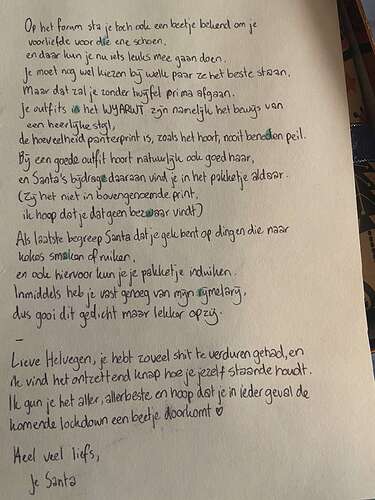 Op het forum sta je toch ook een beetje bekend om je
voorliefde voor die ene schoen,
en daar kun je nu iets leuks mee gaan doen.
Je moet nog wel kiezen bij welk paar ze het beste staan,
Maar dat zal je zonder twijfel prima afgaan.
Je outfits in het WYARWT zijn namelijk het bewijs van
een heerlijke stijl,
de hoeveelheid panterprint is, zoals het hoort, nooit beneden peil.
Bij een goede outfit hoort natuurlijk ook goed haar,
en Santa's bijdrage daaraan vind je in het pakketje aldaar.
(Zij het niet in bovengenoemde print,
ik hoop dat je dat geen bezwaar vindt)
Als laatste begreep Santa dat je gek bent op dingen die naar
kokos smaken of ruiken,
en ook hiervoor kun je je pakketje induiken.
Inmiddels heb je vast genoeg van mijn rijmelarij,
dus gooi dit gedicht maar lekker opzij.
–
Lieve Helvegen, je hebt zoveel shit te verduren gehad, en
ik vind het ontzettend knap hoe je jezelf staande houdt.
Ik gun je het aller, allerbeste en hoop dat je in ieder geval de
komende lockdown een beetje doorkomt ♡
Heel veel liefs,
Je Santa